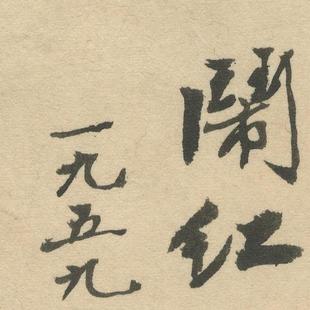 鬧红
一九五九